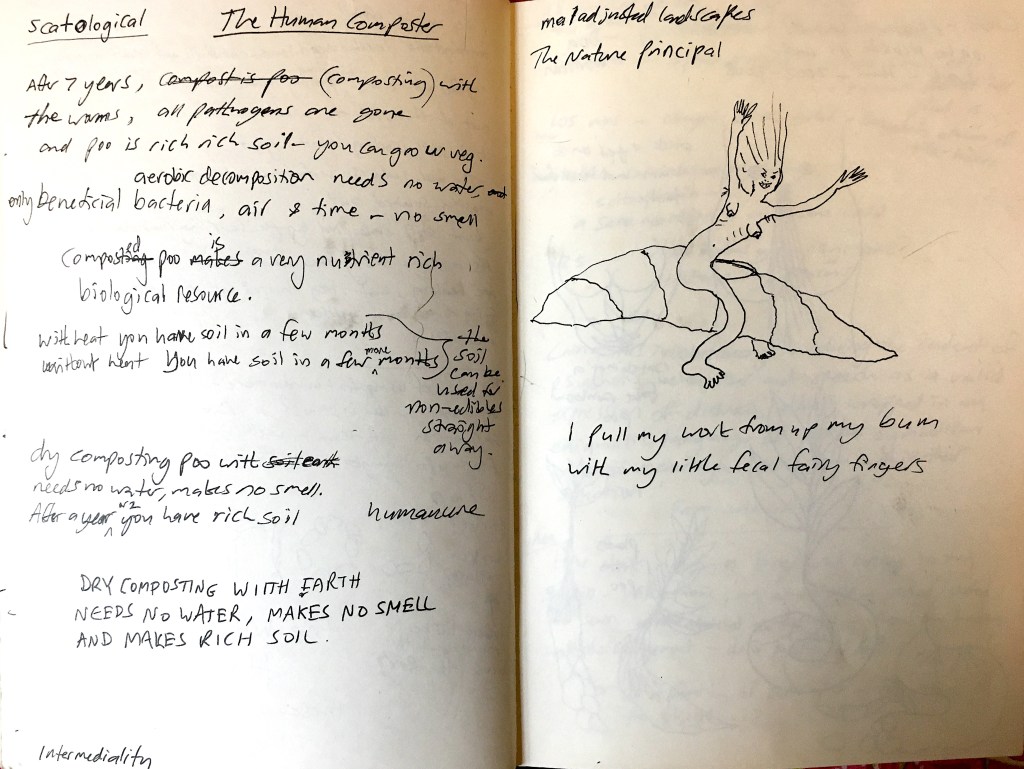 scatological The Human Composter
After 7 years, compost is poo (composting) with
the worms, all pathogens are gone
and poo is rich rich soil - you can grow veg.
aerobic decomposition needs no water, and
only beneficial bacteria, air & time - no smell
composted poo makes is a very nutrient rich
biological resource.
with heat you have soil in a few months
without heat you have soil in a few more months
the
soil
can be
used for
non-edibles
straight
away.
dry composting poo with soil earth
needs no water, makes no smell.
After a year or 2 you have rich soil
humanure
DRY COMPOSTING WITH EARTH
NEEDS NO WATER, MAKES NO SMELL
AND MAKES RICH SOIL.
Intermediality
maladjusted landscapes
The Nature Principal
I pull my work from up my bum
with my little fecal fairy fingers